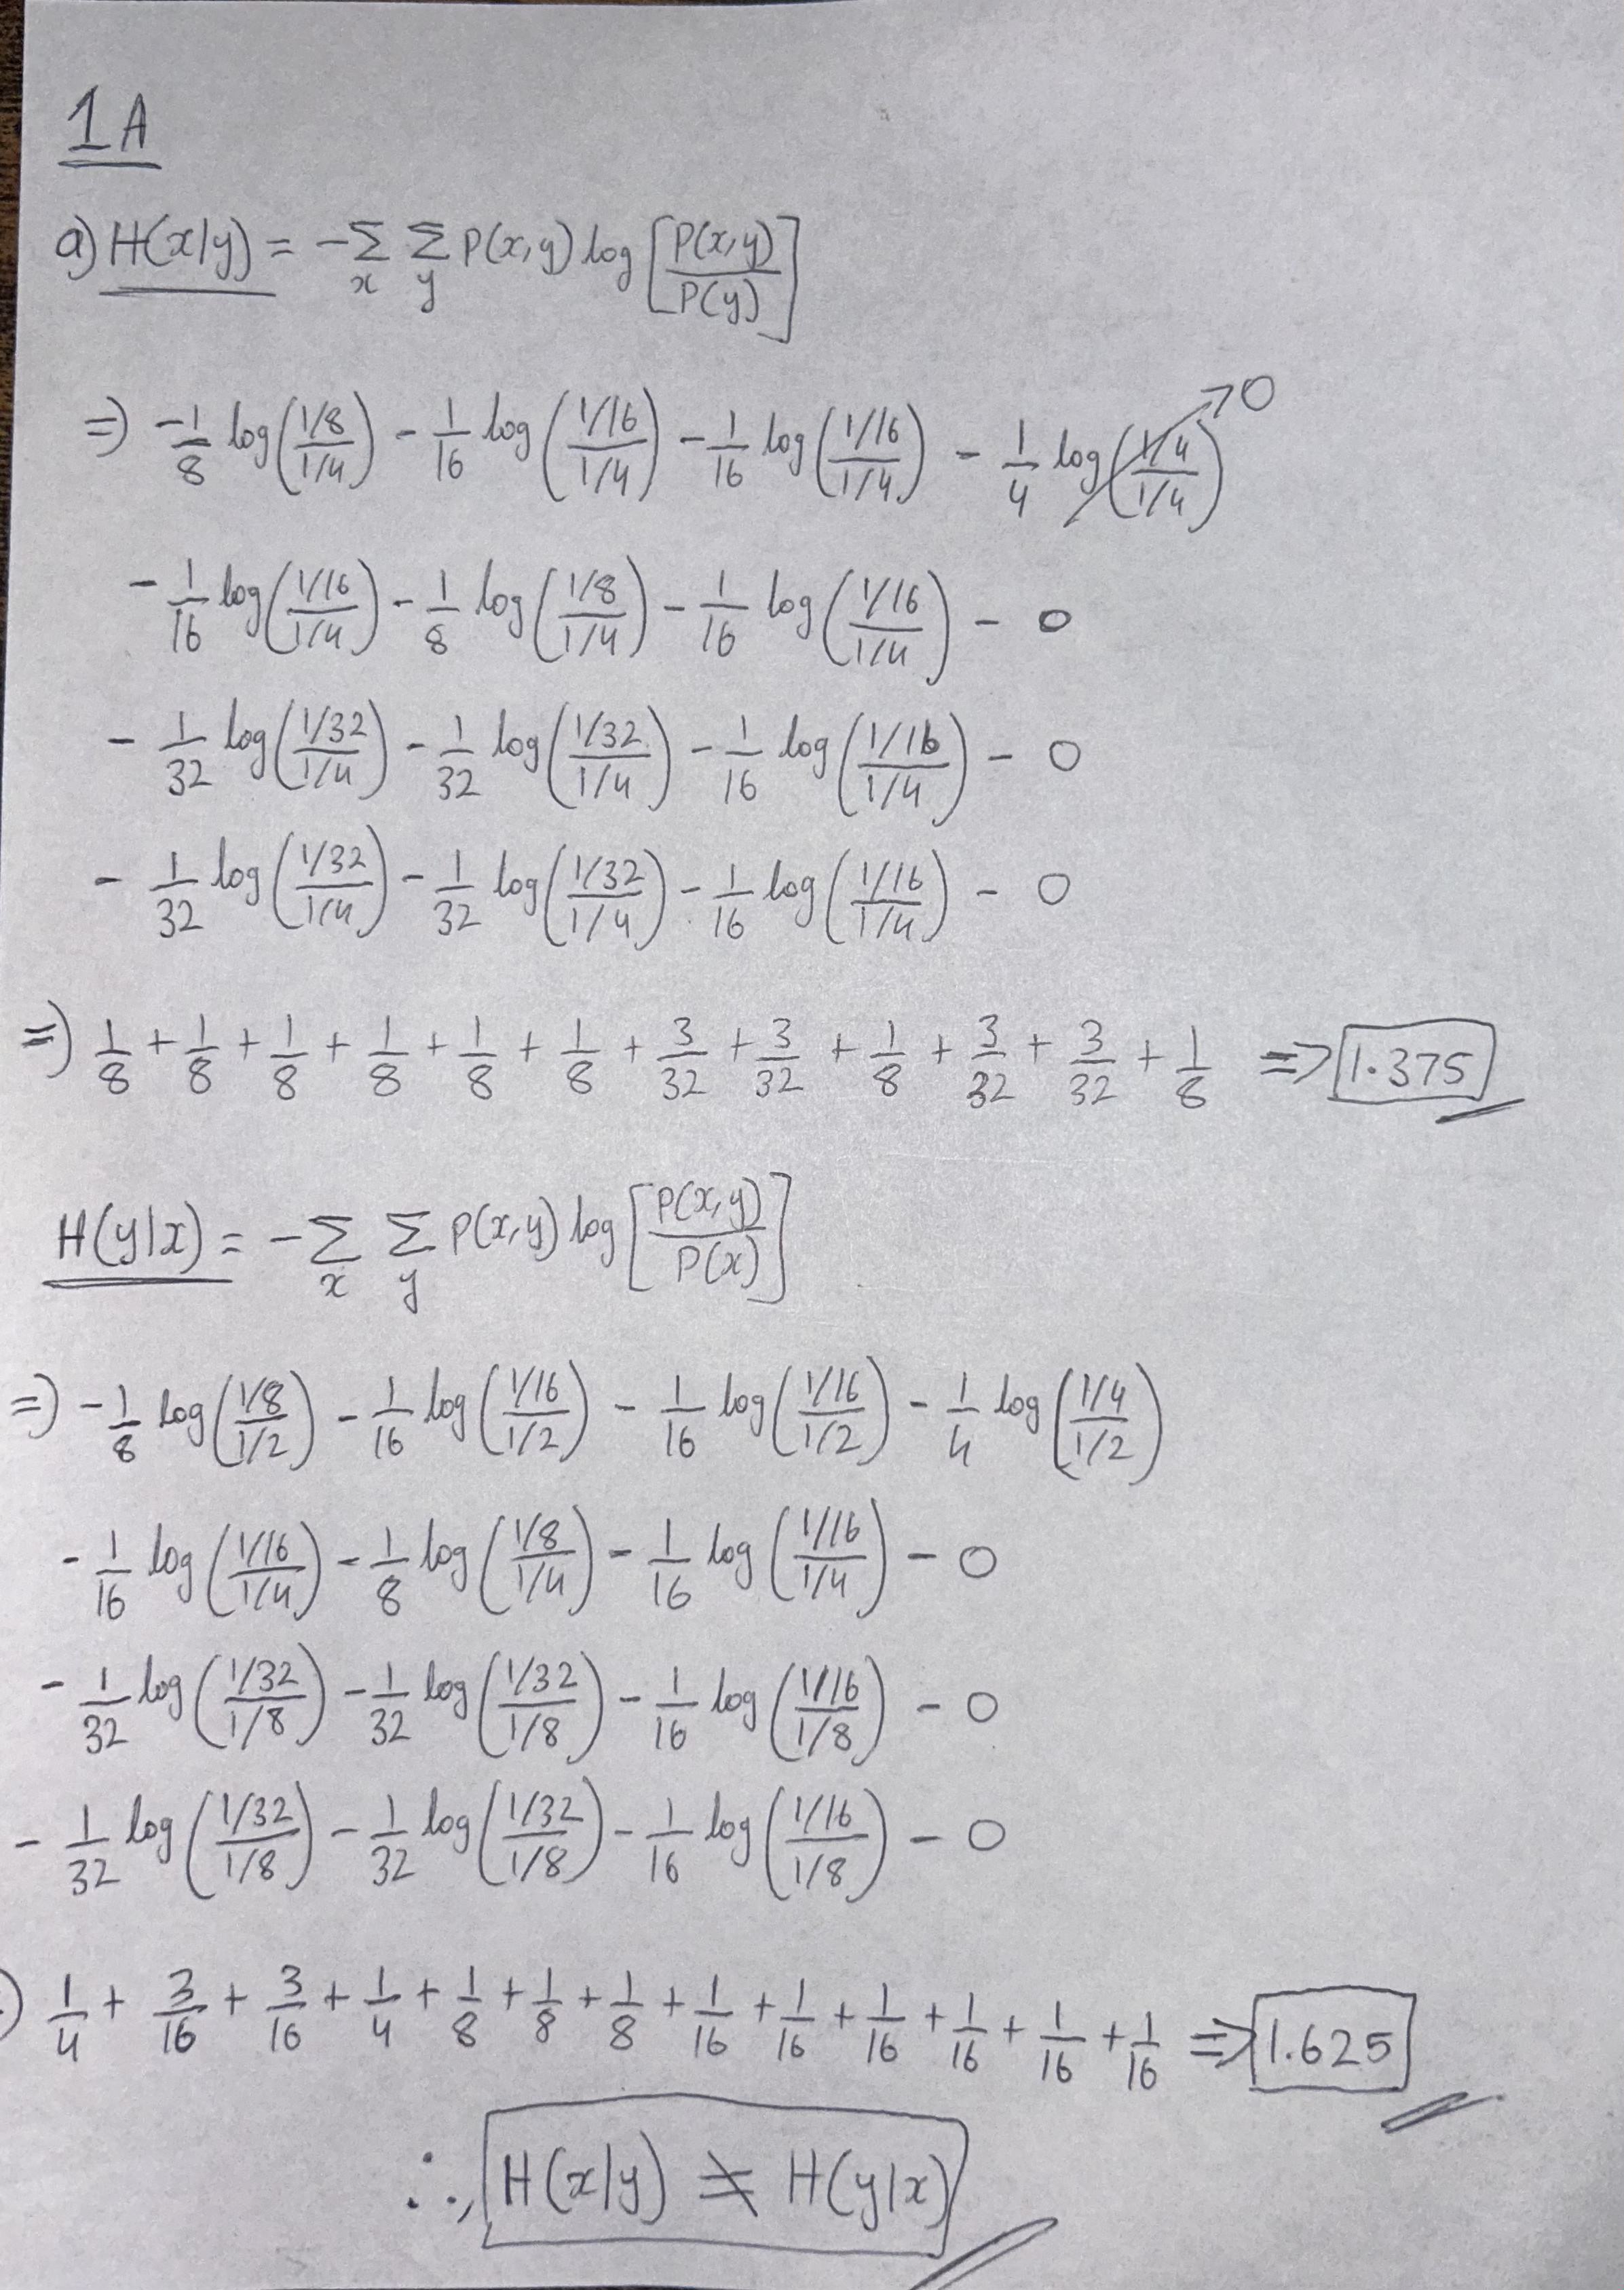 1A
a) H(x|y) = -∑x ∑y P(x,y) log [P(x,y)/P(y)]
=) -1/8 log((1/8)/(1/4)) - 1/16 log((1/16)/(1/4)) - 1/16 log((1/16)/(1/4)) - 1/4 log((1/4)/(1/4)) → 0
- 1/16 log((1/16)/(1/4)) - 1/8 log((1/8)/(1/4)) - 1/16 log((1/16)/(1/4)) - 0
- 1/32 log((1/32)/(1/4)) - 1/32 log((1/32)/(1/4)) - 1/16 log((1/16)/(1/4)) - 0
- 1/32 log((1/32)/(1/4)) - 1/32 log((1/32)/(1/4)) - 1/16 log((1/16)/(1/4)) - 0
=) 1/8 + 1/8 + 1/8 + 1/8 + 1/8 + 1/8 + 3/32 + 3/32 + 1/8 + 3/32 + 3/32 + 1/8 => 1.375
H(y|x) = -∑x ∑y P(x,y) log [P(x,y)/P(x)]
=) -1/8 log((1/8)/(1/2)) - 1/16 log((1/16)/(1/2)) - 1/16 log((1/16)/(1/2)) - 1/4 log((1/4)/(1/2))
- 1/16 log((1/16)/(1/4)) - 1/8 log((1/8)/(1/4)) - 1/16 log((1/16)/(1/4)) - 0
- 1/32 log((1/32)/(1/8)) - 1/32 log((1/32)/(1/8)) - 1/16 log((1/16)/(1/8)) - 0
- 1/32 log((1/32)/(1/8)) - 1/32 log((1/32)/(1/8)) - 1/16 log((1/16)/(1/8)) - 0
) 1/4 + 3/16 + 3/16 + 1/4 + 1/8 + 1/8 + 1/8 + 1/16 + 1/16 + 1/16 + 1/16 + 1/16 + 1/16 => 1.625
∴, H(x|y) ≠ H(y|x)